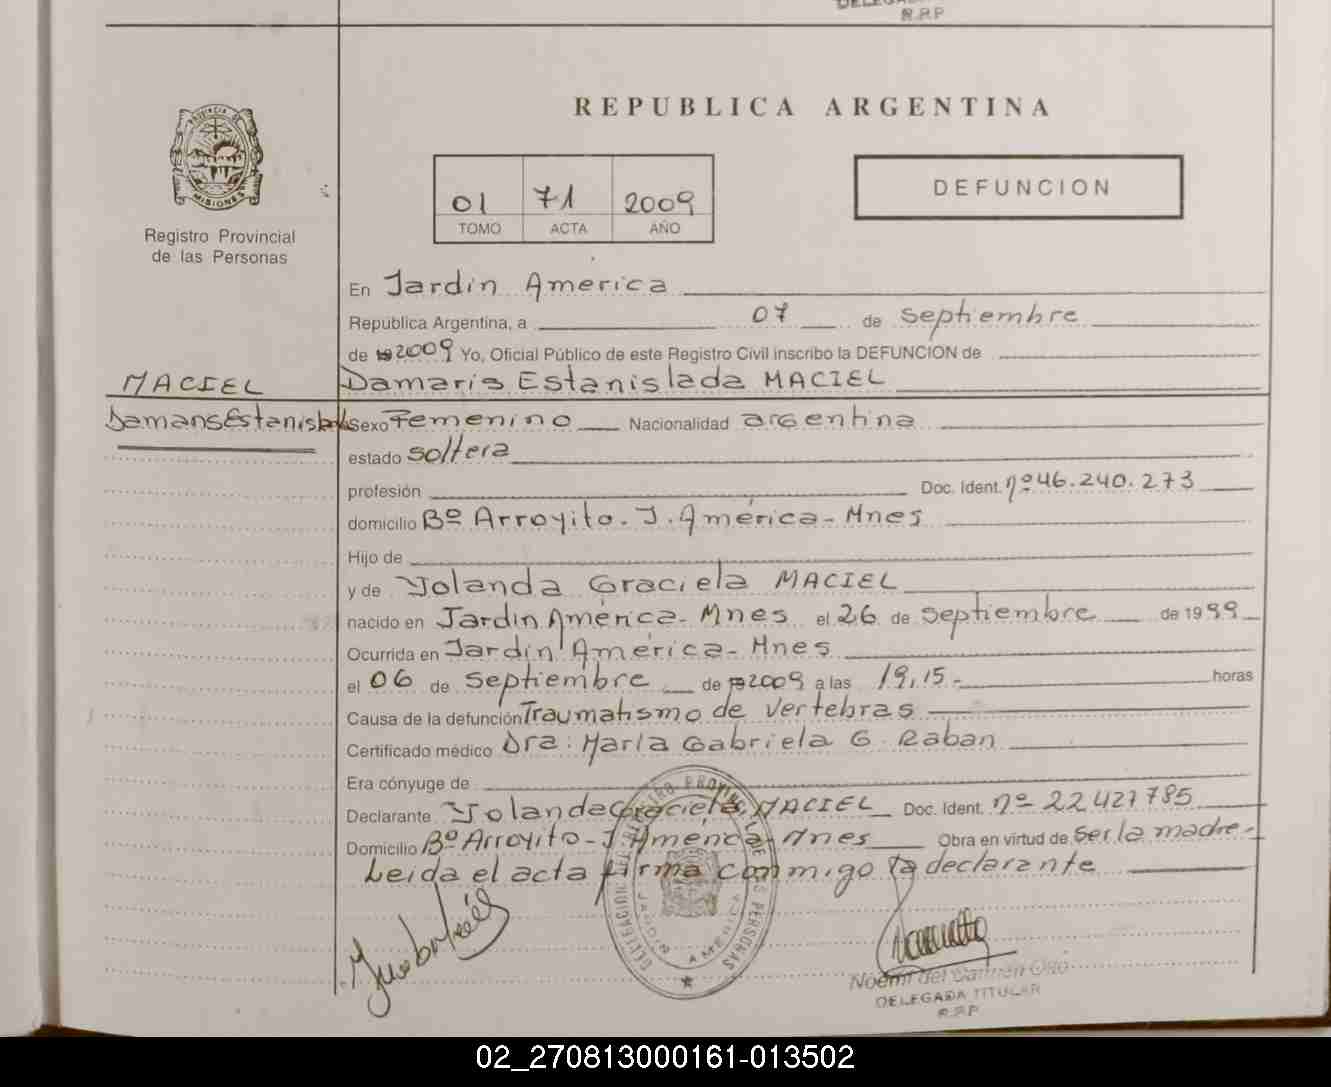 R.R.P
PROVINCIA DE
MISIONES
Registro Provincial
de las Personas
REPUBLICA ARGENTINA
01 71 2009
TOMO ACTA AÑO
DEFUNCION
En Jardin America
Republica Argentina, a 07 de septiembre
de 2009 Yo, Oficial Público de este Registro Civil inscribo la DEFUNCION de
MACIEL Damaris Estanislada MACIEL
Damaris Estanislada Sexo Femenino Nacionalidad argentina
estado soltera
profesión Doc. Ident. nº 46.240.273
domicilio Bº Arroyito - J. América - Mnes
Hijo de
y de Yolanda Graciela MACIEL
nacido en Jardin América - Mnes el 26 de septiembre de 1999
Ocurrida en Jardin América - Mnes
el 06 de septiembre de 2009 a las 19,15.- horas
Causa de la defunción Traumatismo de vertebras
Certificado médico Dra: Maria Gabriela G. Raban
Era cónyuge de
Declarante Yolanda Graciela MACIEL Doc. Ident. nº 22427785
Domicilio Bº Arroyito - J. América - Mnes Obra en virtud de ser la madre -
Leida el acta firma conmigo la declarante
DELEGACION DEL REGISTRO PROVINCIAL DE LAS PERSONAS
JARDIN AMERICA
Noemi del Carmen
DELEGADA TITULAR
R.R.P
02_270813000161-013502